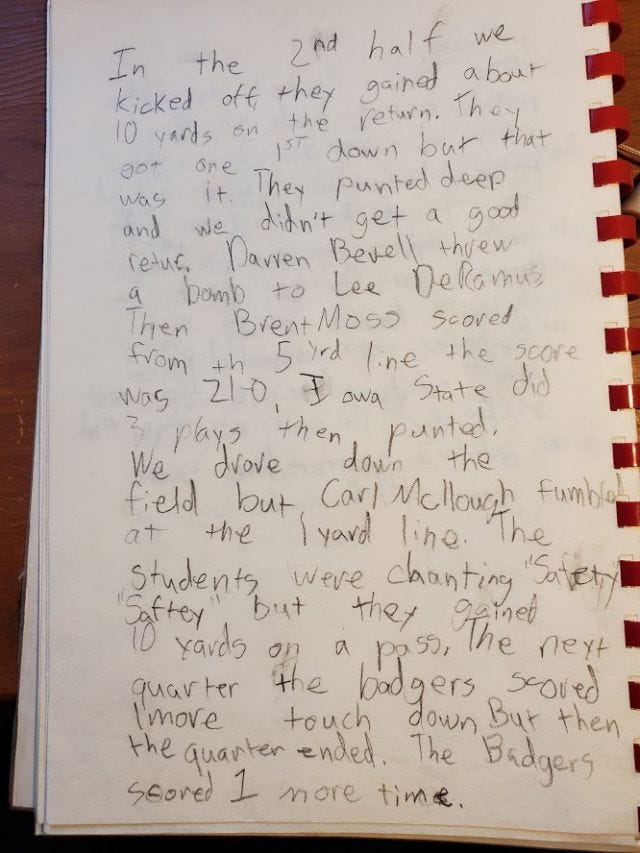 In the 2nd half we
kicked off, they gained about
10 yards on the return. They
got one 1ST down but that
was it. They punted deep
and we didn't get a good
retur. Darren Bevell threw
a bomb to Lee DeRamus
Then Brent Moss scored
from th 5 yrd line the score
was 21-0. Iowa State did
3 plays then punted.
We drove down the
field but Carl McIlough fumbled
at the 1 yard line. The
students were chanting "Safety
"Saftey" but they gained
10 yards on a pass. The next
quarter the badgers scored
1 more touch down But then
the quarter ended. The Badgers
scored 1 more time.